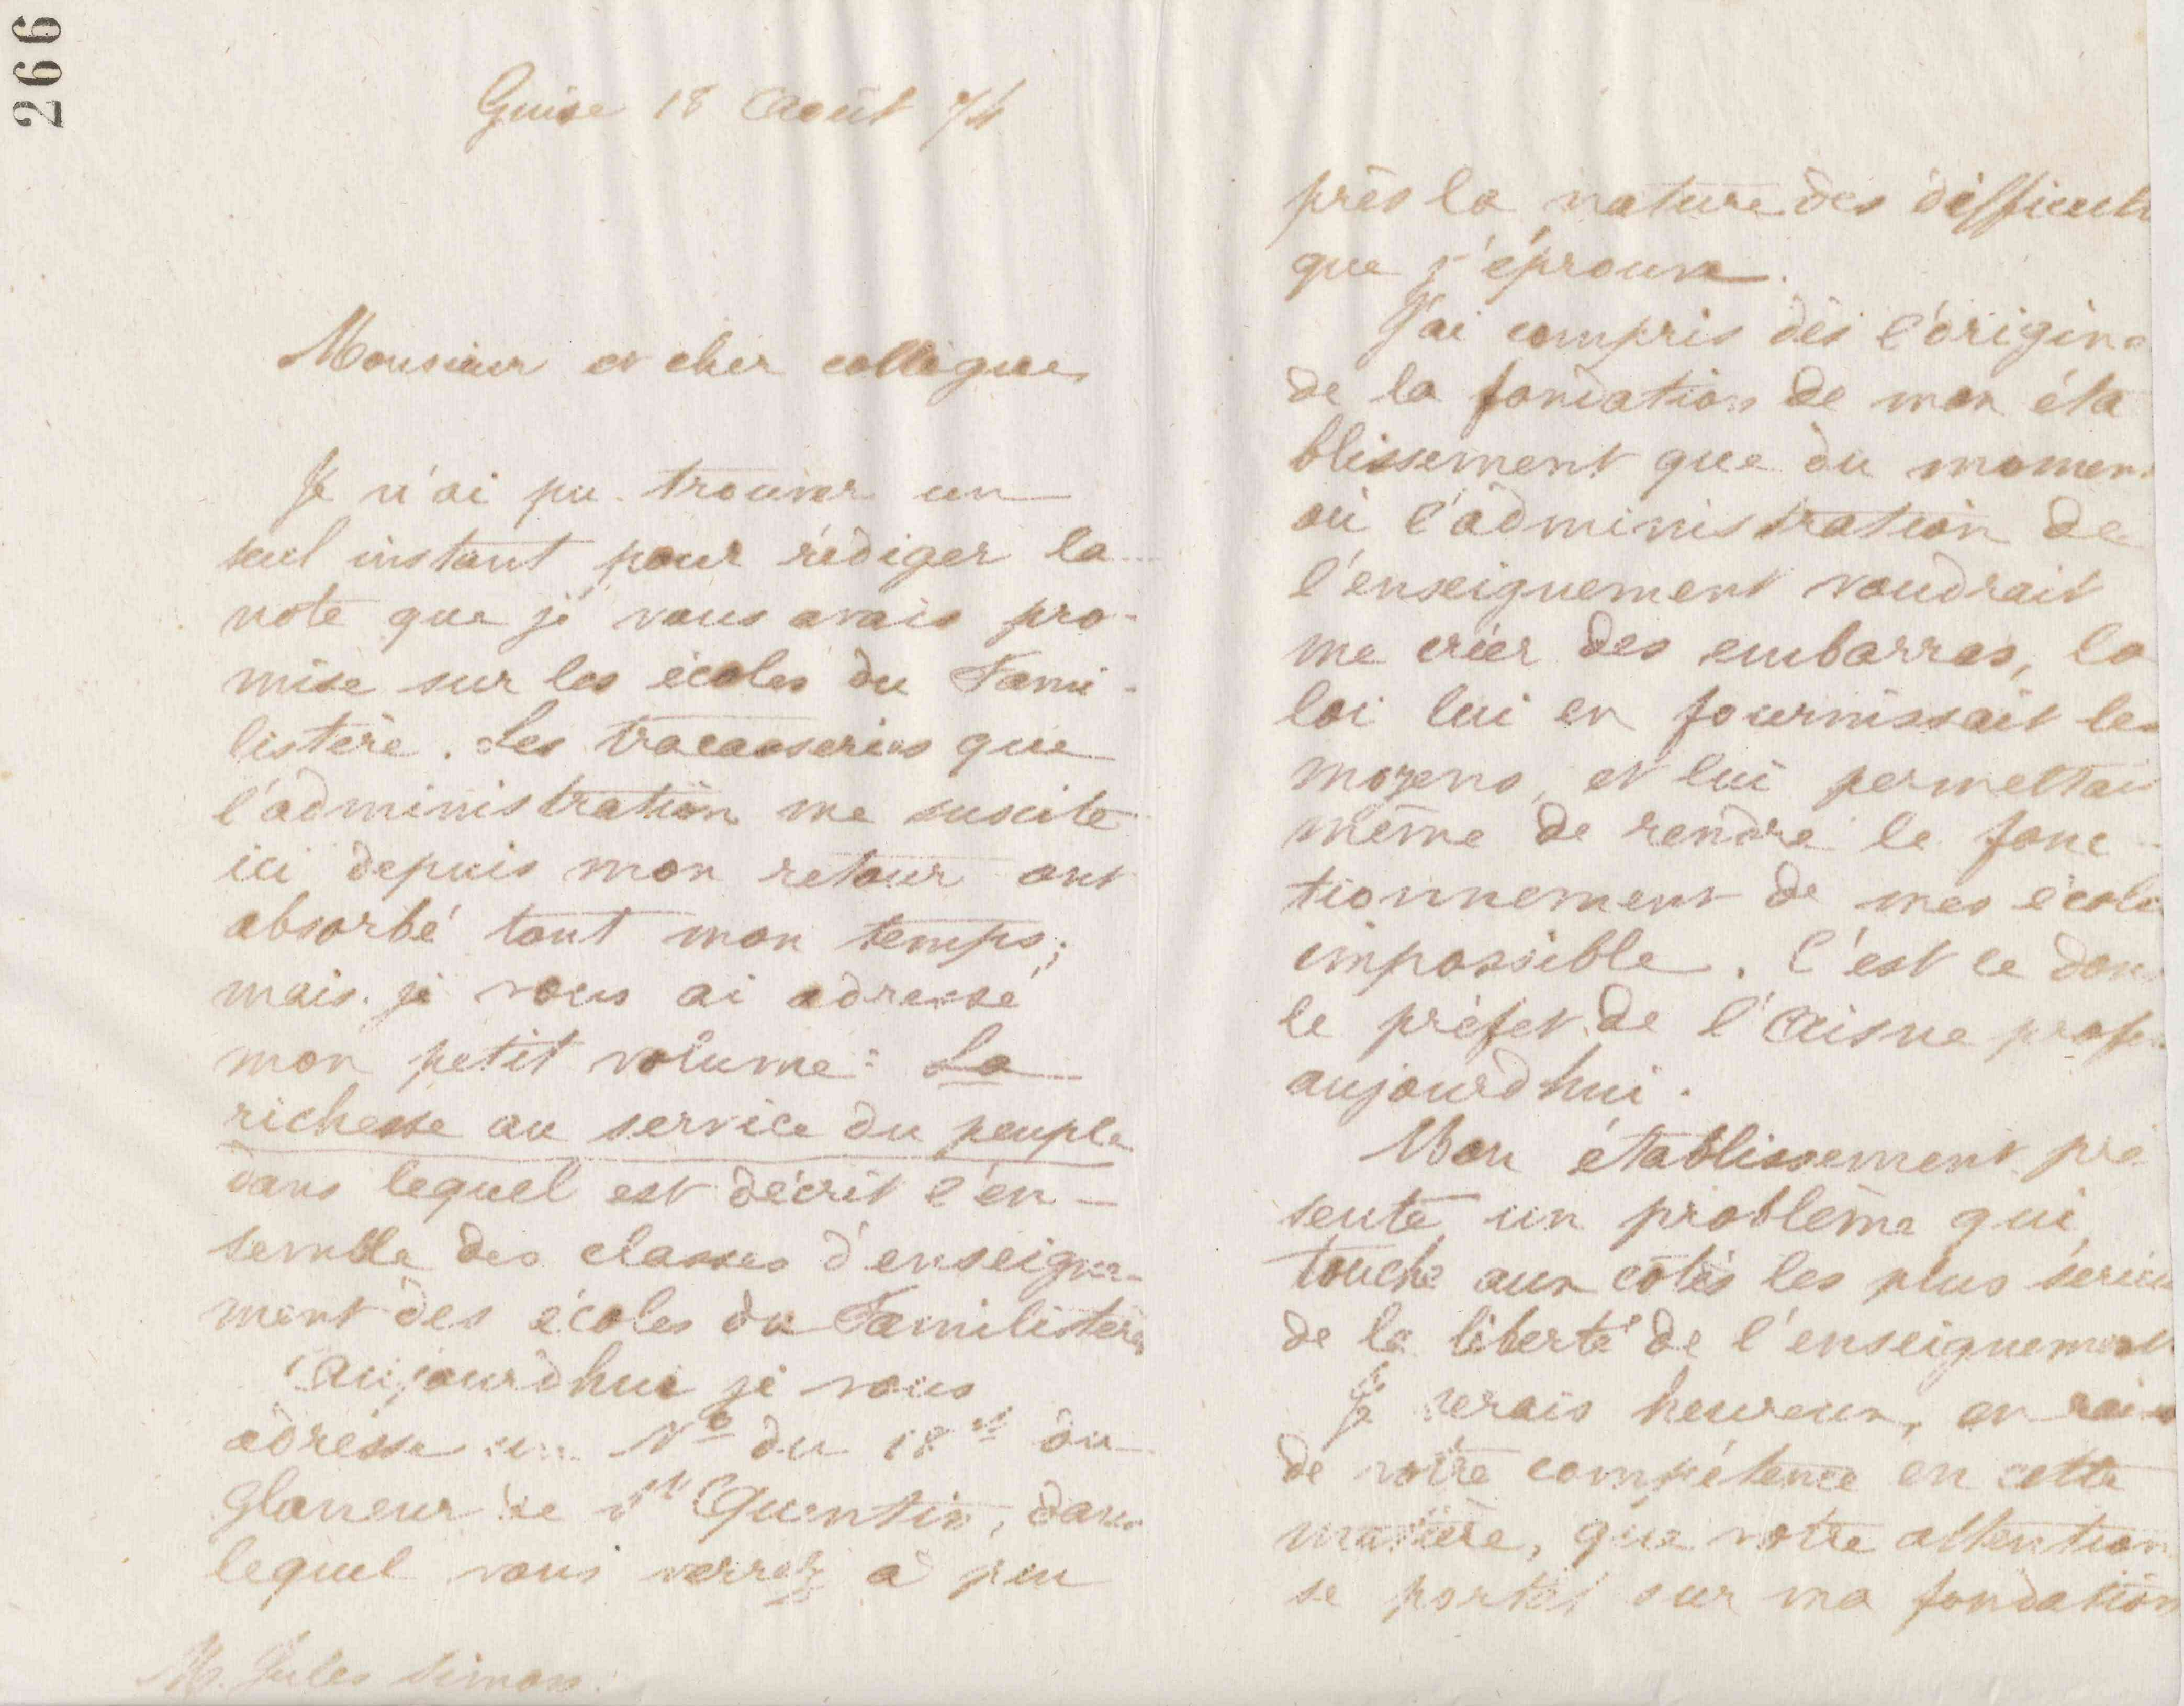 266
Guise 18 Août 74
Monsieur et cher collègue,
Je n'ai pu trouver un
seul instant pour rédiger la
note que je vous avais pro-
mise sur les écoles du Fami-
listère. Les tracasseries que
l'administration me suscite
ici depuis mon retour ont
absorbé tout mon temps;
mais je vous ai adressé
mon petit volume: La
richesse au service du peuple
dans lequel est décrit l'en-
semble des classes d'enseigne-
ment des écoles du Familistère
Aujourd'hui je vous
adresse un No du 18 ct du
Glaneur de St Quentin, dans
lequel vous verrez à peu
M. Jules Simon.
près la nature des difficult
que j'éprouve.
J'ai compris dès l'origine
de la fondation de mon éta
blissement que du momen
où l'administration de
l'enseignement voudrait
me créer des embarras, la
loi lui en fournissait les
moyens, et lui permettait
même de rendre le fonc-
tionnement de mes écoles
impossible. C'est ce dont
le préfet de l'Aisne profi
aujourd'hui.
Mon établissement pré
sente un problème qui
touche aux côtés les plus sérieu
de la liberté de l'enseignement
Je serais heureux, en rai
de votre compétence en cette
matière, que votre attention
se portât sur ma fondation